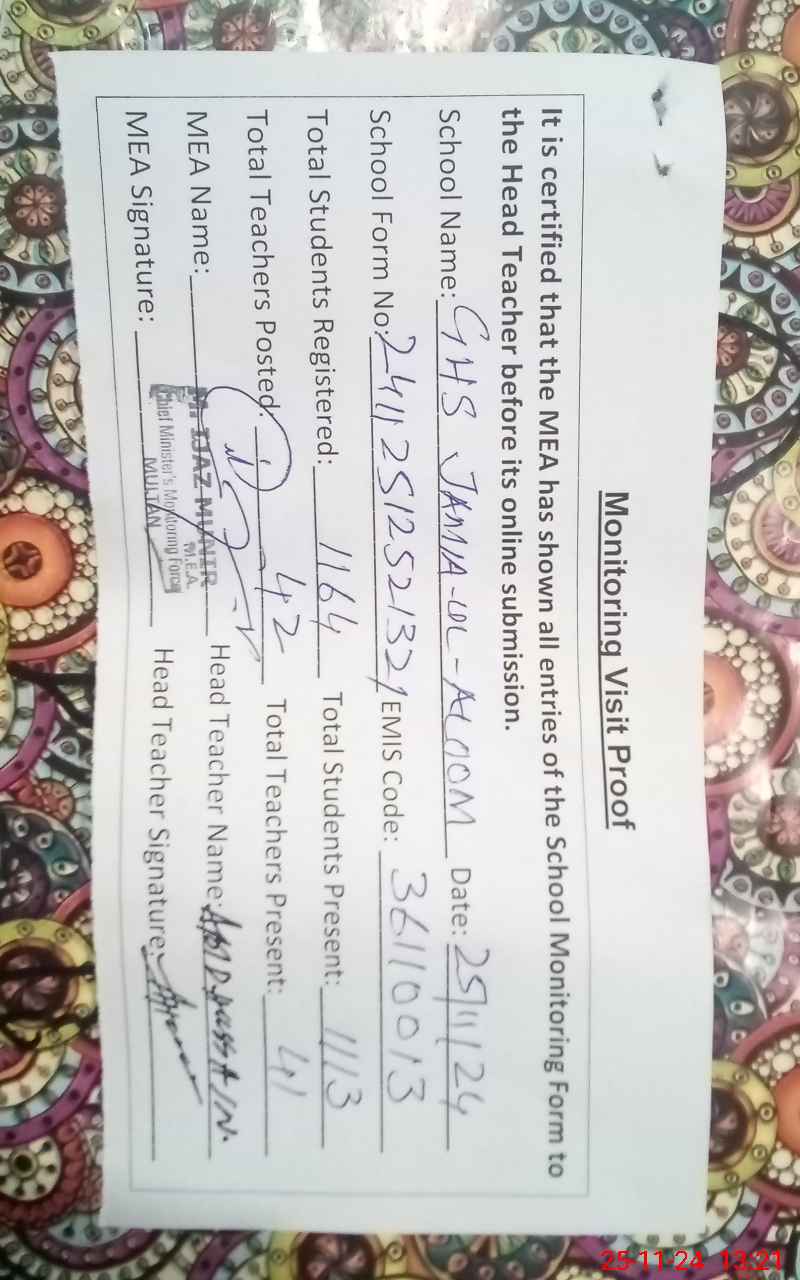 Monitoring Visit Proof
It is certified that the MEA has shown all entries of the School Monitoring Form to
the Head Teacher before its online submission.
School Name: GHS JAMIA-UL-ALOOM Date: 25/11/24
School Form No: 2411251252132 EMIS Code: 36110013
Total Students Registered: 1164 Total Students Present: 1113
Total Teachers Posted: 42 Total Teachers Present: 41
MEA Name: IJAZ MUNIR Head Teacher Name:
M.E.A.
MEA Signature: Chief Minister's Monitoring Force Head Teacher Signature:
MULTAN
25-11-24 13:21